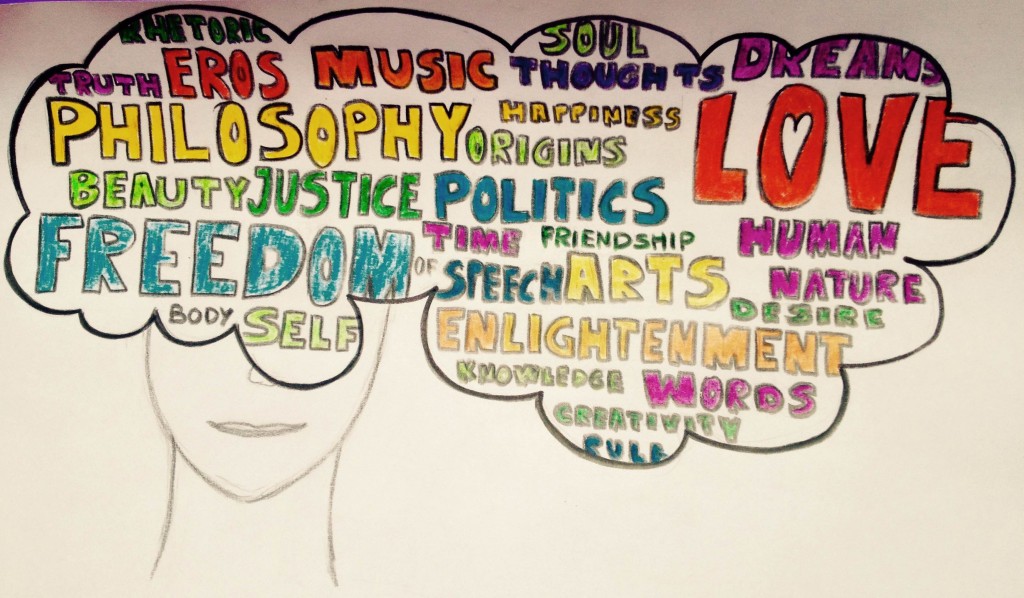 RHETORIC SOUL
TRUTH EROS MUSIC THOUGHTS DREAMS
PHILOSOPHY HAPPINESS LOVE
ORIGINS
BEAUTY JUSTICE POLITICS
FREEDOM TIME FRIENDSHIP HUMAN
OF SPEECH ARTS NATURE
BODY SELF DESIRE
ENLIGHTENMENT
KNOWLEDGE WORDS
CREATIVITY
RULE